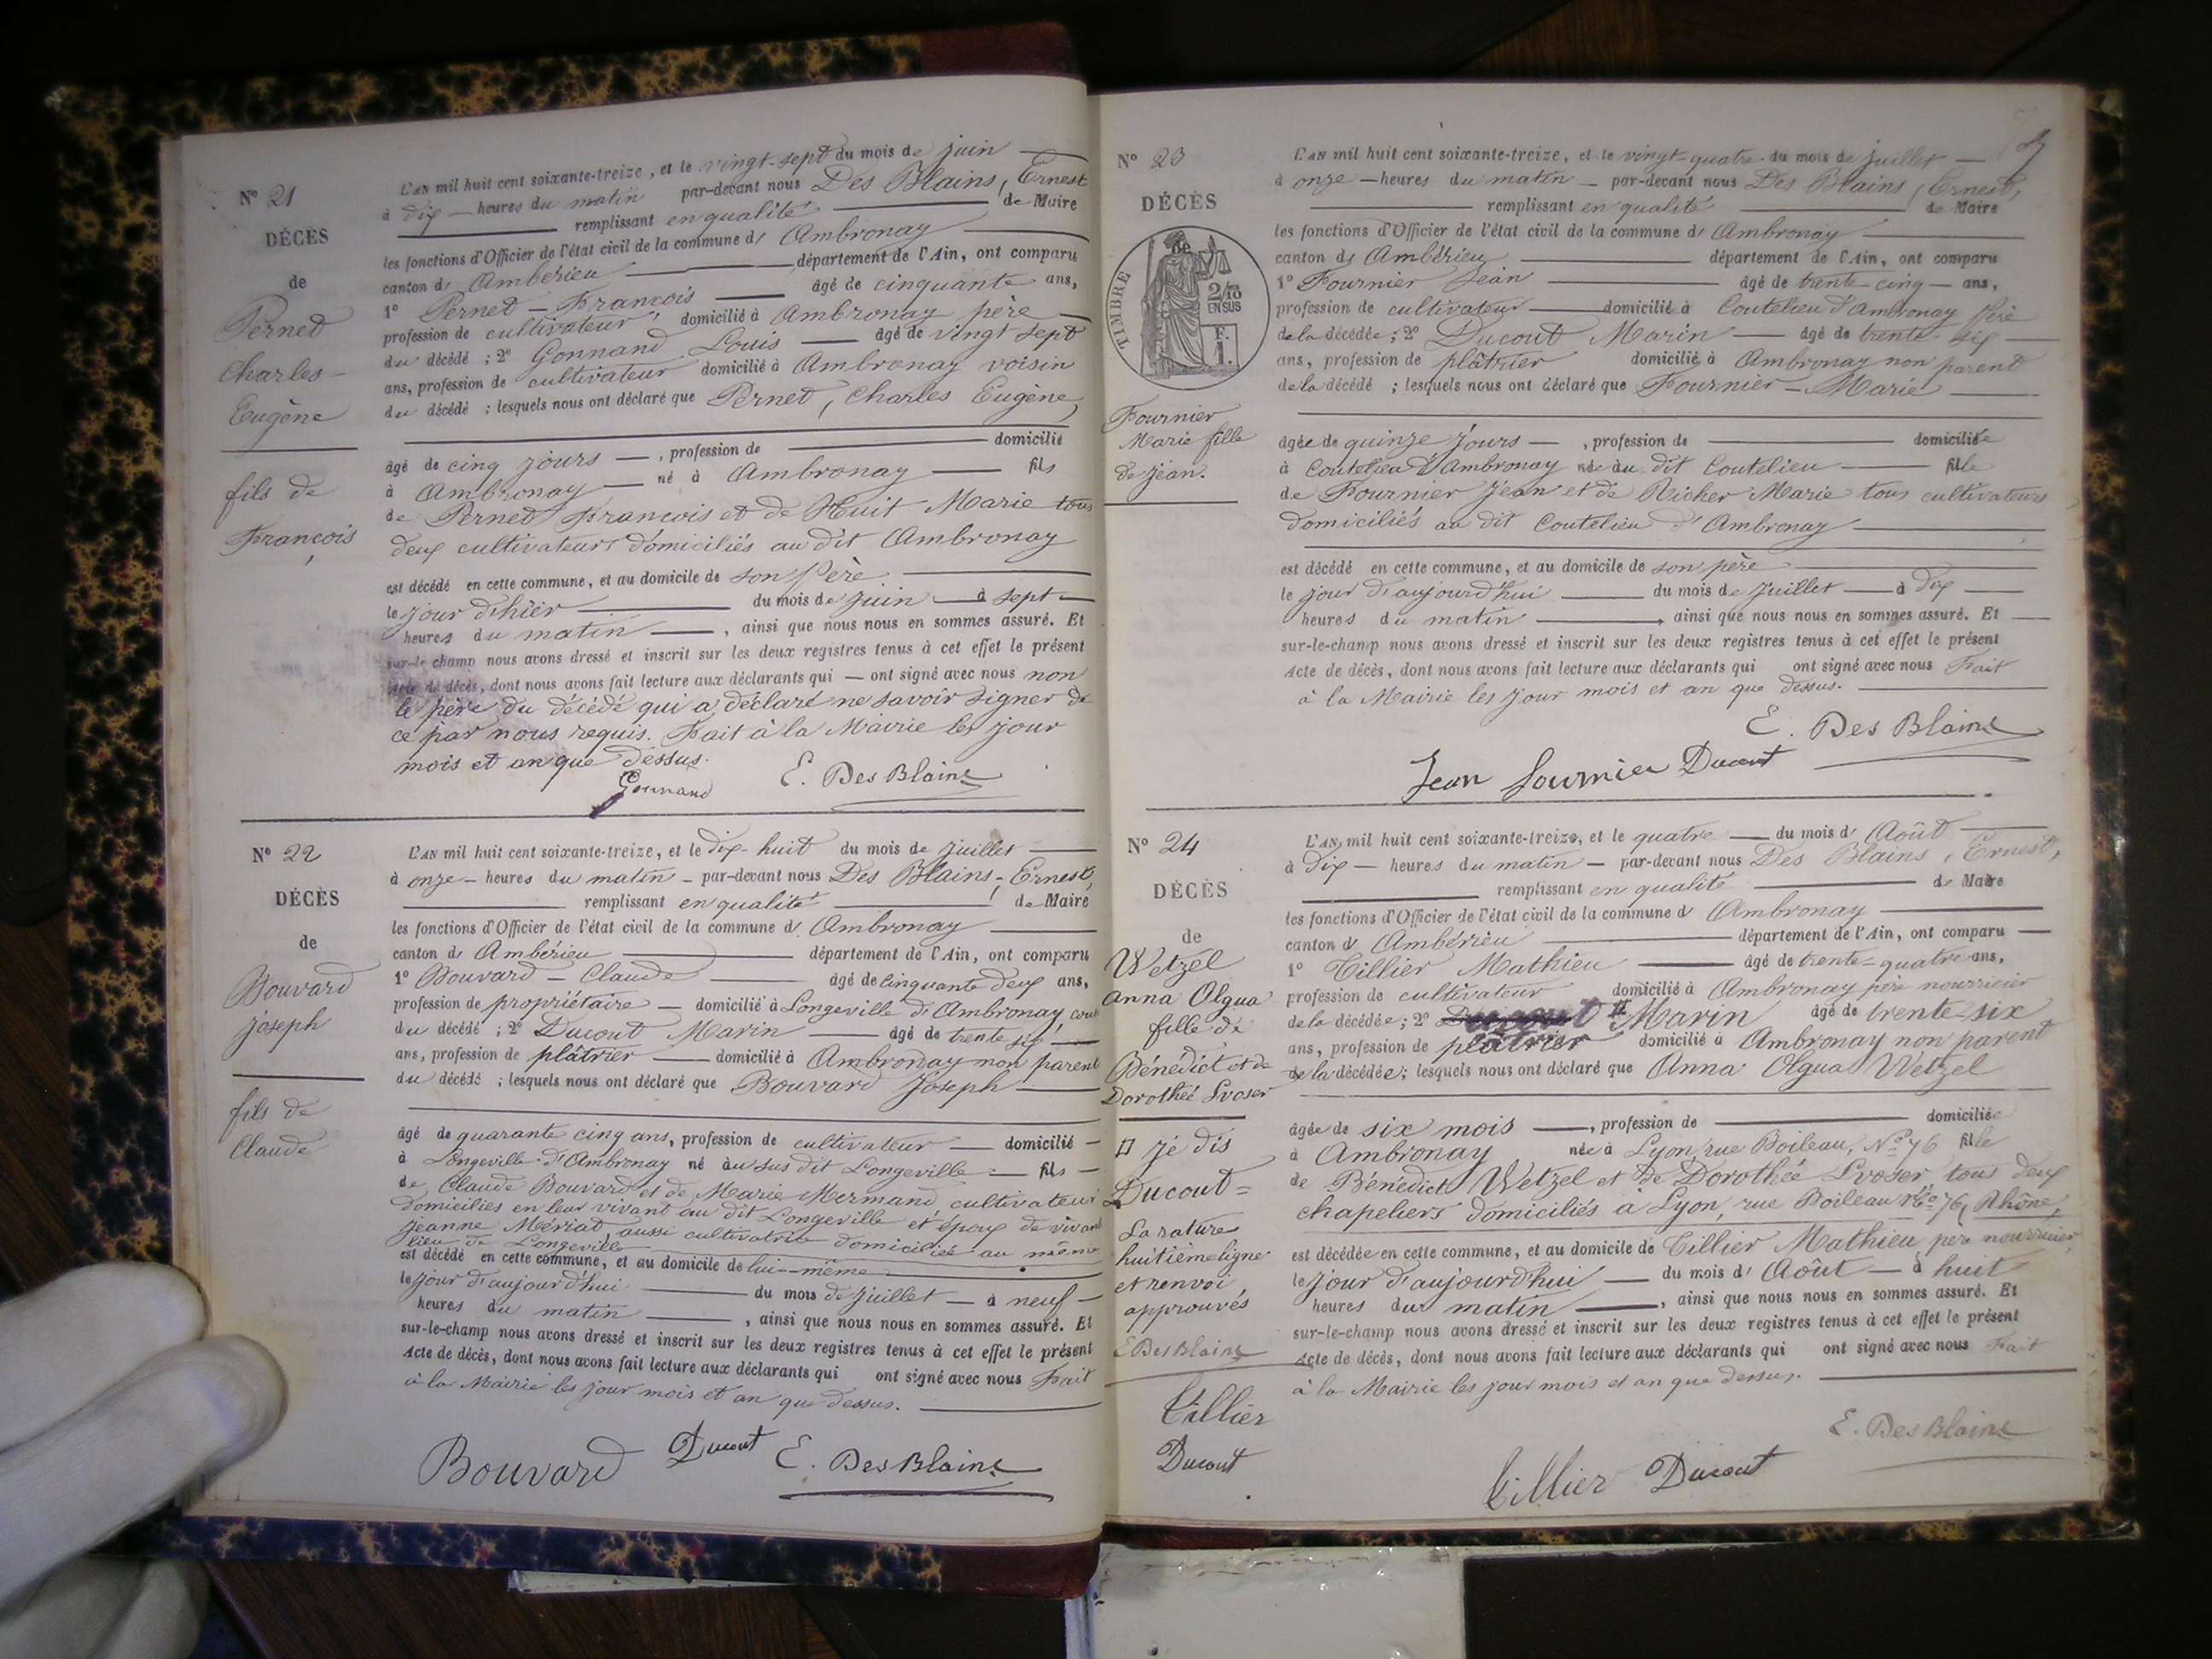 N° 21
DÉCÈS
de
Pernet
Charles-
Eugène
fils de
François
L'AN mil huit cent soixante-treize, et le vingt-sept du mois de juin
à dix heures du matin par-devant nous Des Blains, Ernest
remplissant en qualité de Maire
les fonctions d'Officier de l'état civil de la commune d' Ambronay
canton d' Ambérieu département de l'Ain, ont comparu
1° Pernet - François âgé de cinquante ans,
profession de cultivateur, domicilié à Ambronay père
du décédé ; 2° Gonnand Louis âgé de vingt sept
ans, profession de cultivateur domicilié à Ambronay voisin
du décédé ; lesquels nous ont déclaré que Pernet, Charles Eugène,
âgé de cinq jours, profession de domicilié
à Ambronay né à Ambronay fils
de Pernet François et de Huit Marie tous
deux cultivateurs domiciliés au dit Ambronay
est décédé en cette commune, et au domicile de son père
le jour d'hier du mois de juin à sept
heures du matin, ainsi que nous nous en sommes assuré. Et
sur-le-champ nous avons dressé et inscrit sur les deux registres tenus à cet effet le présent
acte de décès, dont nous avons fait lecture aux déclarants qui ont signé avec nous non
le père du décédé qui a déclaré ne savoir signer de
ce par nous requis. Fait à la Mairie les jour
mois et an que dessus.
Gonnand E. Des Blains
N° 22
DÉCÈS
de
Bouvard
joseph
fils de
Claude
L'AN mil huit cent soixante-treize, et le dix-huit du mois de juillet
à onze heures du matin par-devant nous Des Blains, Ernest,
remplissant en qualité de Maire
les fonctions d'Officier de l'état civil de la commune d' Ambronay
canton d' Ambérieu département de l'Ain, ont comparu
1° Bouvard - Claude âgé de cinquante deux ans,
profession de propriétaire domicilié à Longeville d'Ambronay
du décédé ; 2° Ducout Marin âgé de trente six
ans, profession de plâtrier domicilié à Ambronay non parent
du décédé ; lesquels nous ont déclaré que Bouvard Joseph
âgé de quarante cinq ans, profession de cultivateur domicilié
à Longeville d'Ambronay né au sus dit Longeville fils
de Claude Bouvard et de Marie Mermand, cultivateurs
domiciliés en leur vivant au dit Longeville et époux de vivant
Jeanne Mériat, aussi cultivatrice domiciliée au même
lieu de Longeville
est décédé en cette commune, et au domicile de lui-même
le jour d'aujourd'hui du mois de juillet à neuf
heures du matin, ainsi que nous nous en sommes assuré. Et
sur-le-champ nous avons dressé et inscrit sur les deux registres tenus à cet effet le présent
Acte de décès, dont nous avons fait lecture aux déclarants qui ont signé avec nous Fait
à la Mairie les jour mois et an que dessus.
Bouvard Ducout E. Des Blains
N° 23
DÉCÈS
de
TIMBRE
2/10
EN SUS
F.
1.
Fournier
Marie fille
de Jean.
L'AN mil huit cent soixante-treize, et le vingt-quatre du mois de juillet
à onze heures du matin par-devant nous Des Blains, Ernest,
remplissant en qualité de Maire
les fonctions d'Officier de l'état civil de la commune d' Ambronay
canton d' Ambérieu département de l'Ain, ont comparu
1° Fournier Jean âgé de trente-cinq ans,
profession de cultivateur domicilié à Coutelieu d'Ambronay père
de la décédée ; 2° Ducout Marin âgé de trente six
ans, profession de plâtrier domicilié à Ambronay non parent
de la décédé ; lesquels nous ont déclaré que Fournier - Marie
agée de quinze jours, profession de domiciliée
à Coutelieu d'Ambronay née au dit Coutelieu fille
de Fournier Jean et de Richer Marie tous cultivateurs
domiciliés au dit Coutelieu d'Ambronay
est décédé en cette commune, et au domicile de son père
le jour d'aujourd'hui du mois de Juillet à dix
heures du matin, ainsi que nous nous en sommes assuré. Et
sur-le-champ nous avons dressé et inscrit sur les deux registres tenus à cet effet le présent
Acte de décès, dont nous avons fait lecture aux déclarants qui ont signé avec nous Fait
à la Mairie les jour mois et an que dessus.
E. Des Blains
Jean fournier Ducout
N° 24
DÉCÈS
de
Wetzel
Anna Olgua
fille de
Bénédict et de
Dorothée Lvoser
je dis
Ducout =
La rature
huitième ligne
et renvoi
approuvés
E. Des Blains
Tillier
Ducout
L'AN mil huit cent soixante-treize, et le quatre du mois d' Août
à dix heures du matin par-devant nous Des Blains, Ernest,
remplissant en qualité de Maire
les fonctions d'Officier de l'état civil de la commune d' Ambronay
canton d' Ambérieu département de l'Ain, ont comparu
1° Tillier Mathieu âgé de trente-quatre ans,
profession de cultivateur domicilié à Ambronay père nourricier
de la décédée ; 2° Ducout Marin âgé de trente-six
ans, profession de plâtrier domicilié à Ambronay non parent
de la décédée ; lesquels nous ont déclaré que Anna Olgua Wetzel
âgée de six mois, profession de domiciliée
à Ambronay née à Lyon, rue Boileau, N° 76 fille
de Bénédict Wetzel et de Dorothée Lvoser, tous deux
chapeliers domiciliés à Lyon, rue Boileau N° 76, Rhône,
est décédée en cette commune, et au domicile de Tillier Mathieu père nourricier,
le jour d'aujourd'hui du mois d' Août à huit
heures du matin, ainsi que nous nous en sommes assuré. Et
sur-le-champ nous avons dressé et inscrit sur les deux registres tenus à cet effet le présent
Acte de décès, dont nous avons fait lecture aux déclarants qui ont signé avec nous Fait
à la Mairie les jour mois et an que dessus.
E. Des Blains
Tillier Ducout